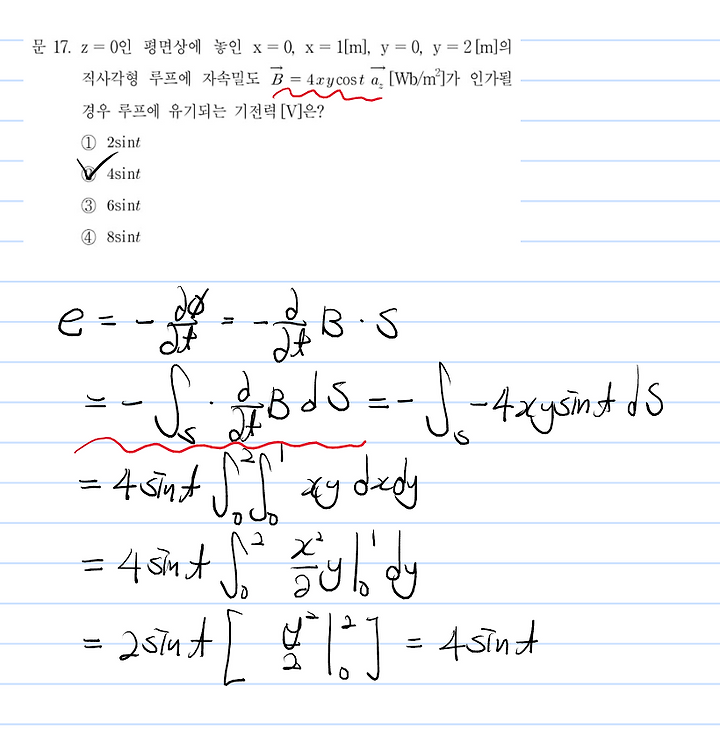 문 17. z = 0인 평면상에 놓인 x = 0, x = 1[m], y = 0, y = 2[m]의
직사각형 루프에 자속밀도 $\vec{B}$ = 4xycost $\vec{a_z}$ [Wb/m²]가 인가될
경우 루프에 유기되는 기전력[V]은?
① 2sint
② 4sint
③ 6sint
④ 8sint
e = - ∂φ/∂t = - ∂/∂t B · S
= - ∫_S · ∂/∂t B dS = - ∫_S -4xysint dS
= 4sint ∫_0^2 ∫_0^1 xy dxdy
= 4sint ∫_0^2 x²/2 y |_0^1 dy
= 2sint [ y²/2 |_0^2 ] = 4sint